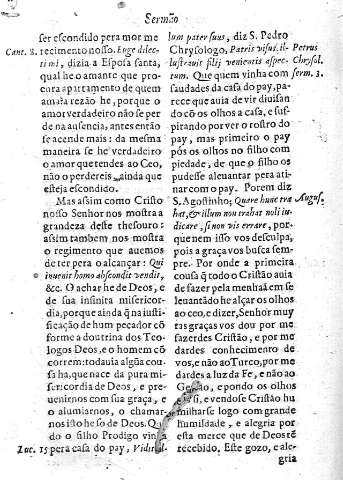 Sermão
ser escondido pera mor me
Cant. 8. recimento nosso. Fuge dilec-
ti mi, dizia a Esposa santa,
qual he o amante que pro-
cura apartamento de quem
ama? a rezão he, porque o
amor verdadeiro não se per
de na ausencia, antes então
se acende mais: da mesma
maneira se he verdadeiro
o amor que tendes ao Ceo,
não o perdereis ainda que
esteja escondido.
Mas assim como Cristo
nosso Senhor nos mostra a
grandeza deste thesouro:
assim tambem nos mostra
o regimento que auemos
de ter pera o alcançar: Qui
inuenit homo abscondit vendit,
&c. O achar he de Deos, e
de sua infinita misericor-
dia, porque ainda q̃ na justi-
ficação de hum peçador cõ
forme a doutrina dos Teo-
logos Deos, e o homem cõ
correm: todauia algũa cou-
sa ha, que nace da pura mi-
sericordia de Deos, e pre-
uenirnos com sua graça, e
o alumiarnos, o chamar-
nos isto he so de Deos. Quã
do o filho Prodigo vinha
Luc. 15 pera casa do pay, Vidit il-
lum pater suus, diz S. Pedro
Chrysologo, Patris visus, il-
lustrauit filij venientis aspec-
tum. Que quem vinha com
saudades da casa do pay, pa-
rece que auia de vir diuisan
do cõ os olhos a casa, e sus-
pirando por ver o rostro do
pay, mas primeiro o pay
pós os olhos no filho com
piedade, de que o filho os
pudesse aleuantar pera ati-
nar com o pay. Porem diz
S. Agostinho; Quare hunc tra
hat, & illum non trahat noli iu-
dicare, si non vis errare, por-
que nem isso vos desculpa,
pois a graça vos busca sem-
pre. Por onde a primeira
cousa q̃ todo o Cristão auia
de fazer pela menhaã em se
leuantãdo he alçar os olhos
ao ceo, e dizer, Senhor muy
tras graças vos dou por me
fazerdes Cristão, e por me
dardes conhecimento de
vos, e não ao Turco, por me
dardes a luz da Fe, e não ao
e pondo os olhos
e vendose Cristão hu
milharse logo com grande
humildade, e alegria por
esta mercê que de Deos tẽ
recebido. Este gozo, e ale-
gria
Petrus
Chrysol.
serm. 3.
August.